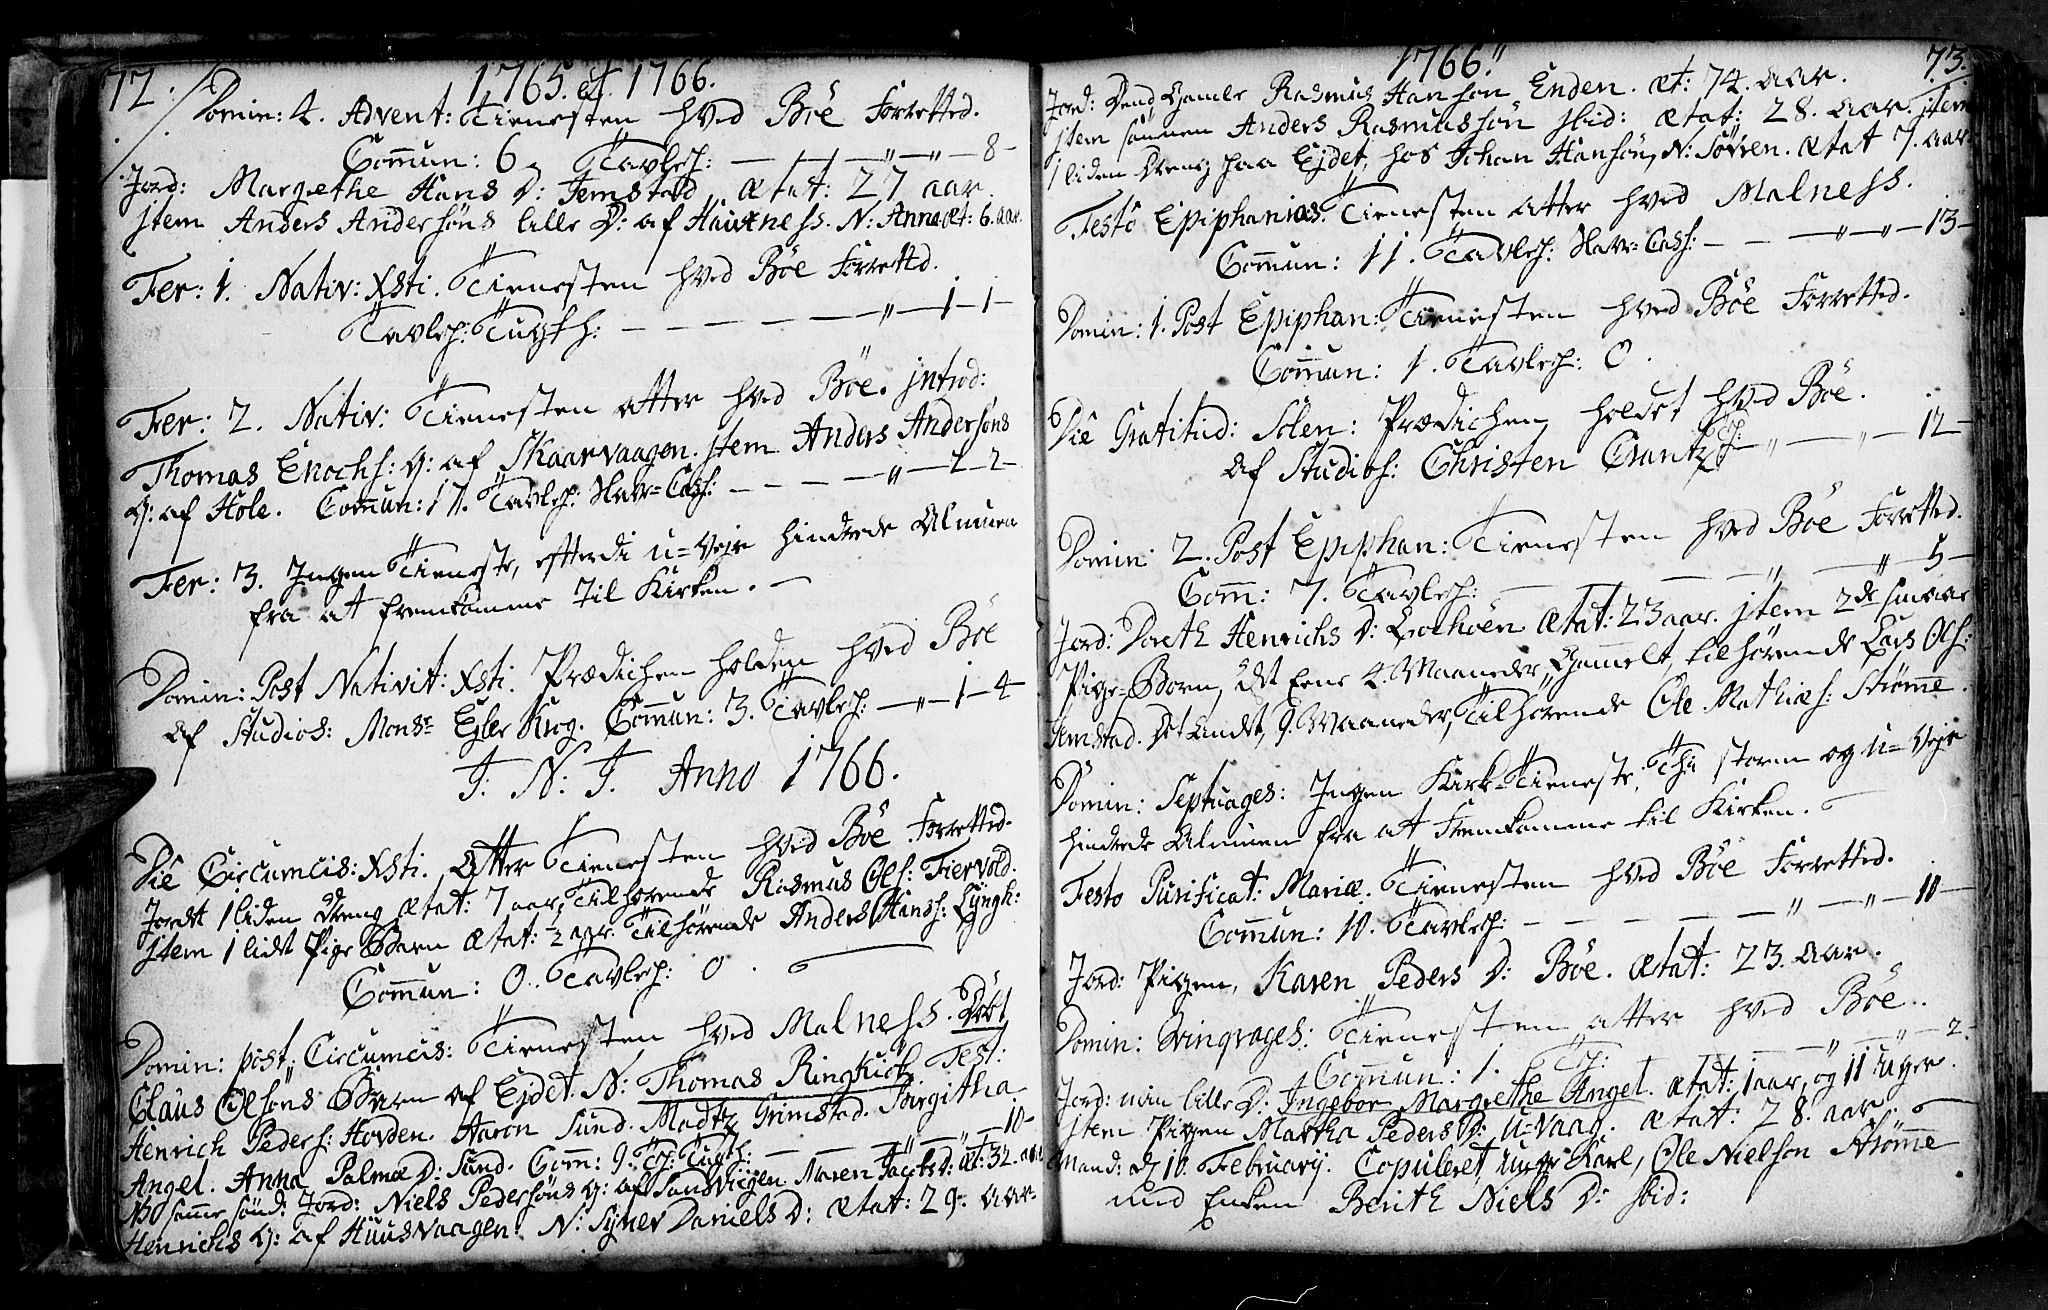 72.
1765. et. 1766.
Domin: 4. Advent: Tienesten hved Böe Forretted.
Com̄un: 6. Tavlep: — — — " — " — 8 —
Jord: Margrethe Hans D: Jemstad ætat: 27 aar.
jtem Anders Andersöns lille D: af Haukness. N: Anna æt: 6. aar.
Fer: 1. Nativ: Xsti. Tienesten hved Böe Forretted.
Tavlep: Tugth: — — — — — " — 1 — 1 —
Fer: 2. Nativ: Tienesten atter hved Böe. jntrod:
Thomas Enochs: Q: af Skaarvaagen. jtem Anders Andersöns
Q: af Hole. Com̄un: 17. Tavlep: Nav=Cass: — — — — " — 2 — 2 —
Fer: 3. Jngen Tieneste, efterdi u=Vejr hindrede Almuen
fra at fremkomme til Kirken. —
Domin: Post Nativit: Xsti. Prædichen holden hved Böe
af Studios: Monsr Eyler Krog. Com̄un: 3. Tavlep: — " — 1 — 4
J: N: J. Anno 1766.
Die Circumcis: Xsti. Atter Tienesten hved Böe Forretted.
Jordet 1 liden Dreng ætat: 7 aar, Tilhörende Rasmus Ols: Fiervold.
jtem 1 lidet Pige Barn ætat: ½ aar. Tilhörende Anders Hans: Lyngh:
Com̄un: 0. Tavlep: 0.
Domin: post Circumcis: Tienesten hved Malness. Döbt
Claus Olsöns Barn af Ejdet. N: Thomas Ringkiöb. Test:
Henrich Peders: Hovden. Aaron Sund. Madtz Grimstad. Birgitha
Angel. Anna Palmæ D: Sund. Com̄: 9. Tp: Tugth: — — — " — " — 10 —
NB samme sönd: Jord: Niels Pedersöns Q: af Sandviigen. Maren Jacobs D: æt: 32. aar
Henrichs Q: af Huusvaagen. N: Syner Daniels D: ætat: 29. aar.
1766.
73.
Jord: Dend Gamle Rasmus Hansön Enden. æt: 74. aar.
jtem sönnen Anders Rasmussön ibid: ætat: 28. aar. jtem
1 liden Dreng paa Ejdet, hos Johan Hansön, N: Sövren. ætat 7. aar
Festo Epiphanias. Tienesten atter hved Malness.
Com̄un: 11. Tavlep: Nav=Cass: — — — " — " — 13 —
Domin: 1. Post Epiphan: Tienesten hved Böe Forretted.
Com̄un: 1. Tavlep: 0.
Die Gratitud: Solen: Prædichen holdet hved Böe.
af Studios: Christen Crantz Tp: — " — " — 12 —
Domin: 2. Post Epiphan: Tienesten hved Böe Forretted.
Com̄: 7. Tavlep: — — — " — " — 5 —
Jord: Doreth Henrichs D: ætat: 23 aar. jtem 2de smaae
Pige=Börn, det Eene 4. Maaneder Gammelt, tilhörende Lars Ols:
Jemstad. Det Andet, 9. Maaneder, Tilhörende Ole Mathias: Ströme.
Domin: Septuages: Jngen Kirk=Tieneste, Thi storm og u=Vejr
hindrede Almuen fra at Fremkomme til Kirken.
Festo Purificat: Mariæ. Tienesten hved Böe Forretted.
Com̄un: 10. Tavlep: — — — — — " — " — 10 —
Jord: Pigen, Karen Peders D: Böe. ætat: 23. aar.
Domin: Qvinqvages: Tienesten atter hved Böe.
Com̄un: 1. Tp: — — — " — " — 2 —
Jord: min lille D. Jngebor Margrethe Angel. ætat: 1 aar, og 11 Uger.
jtem Pigen Martha Peders D: u=vaag. ætat: 28. aar.
Mand: d 10. Februarij. Copuleret unge Karl, Ole Nielsön Ströme
med Enken Berith Niels D: ibid: